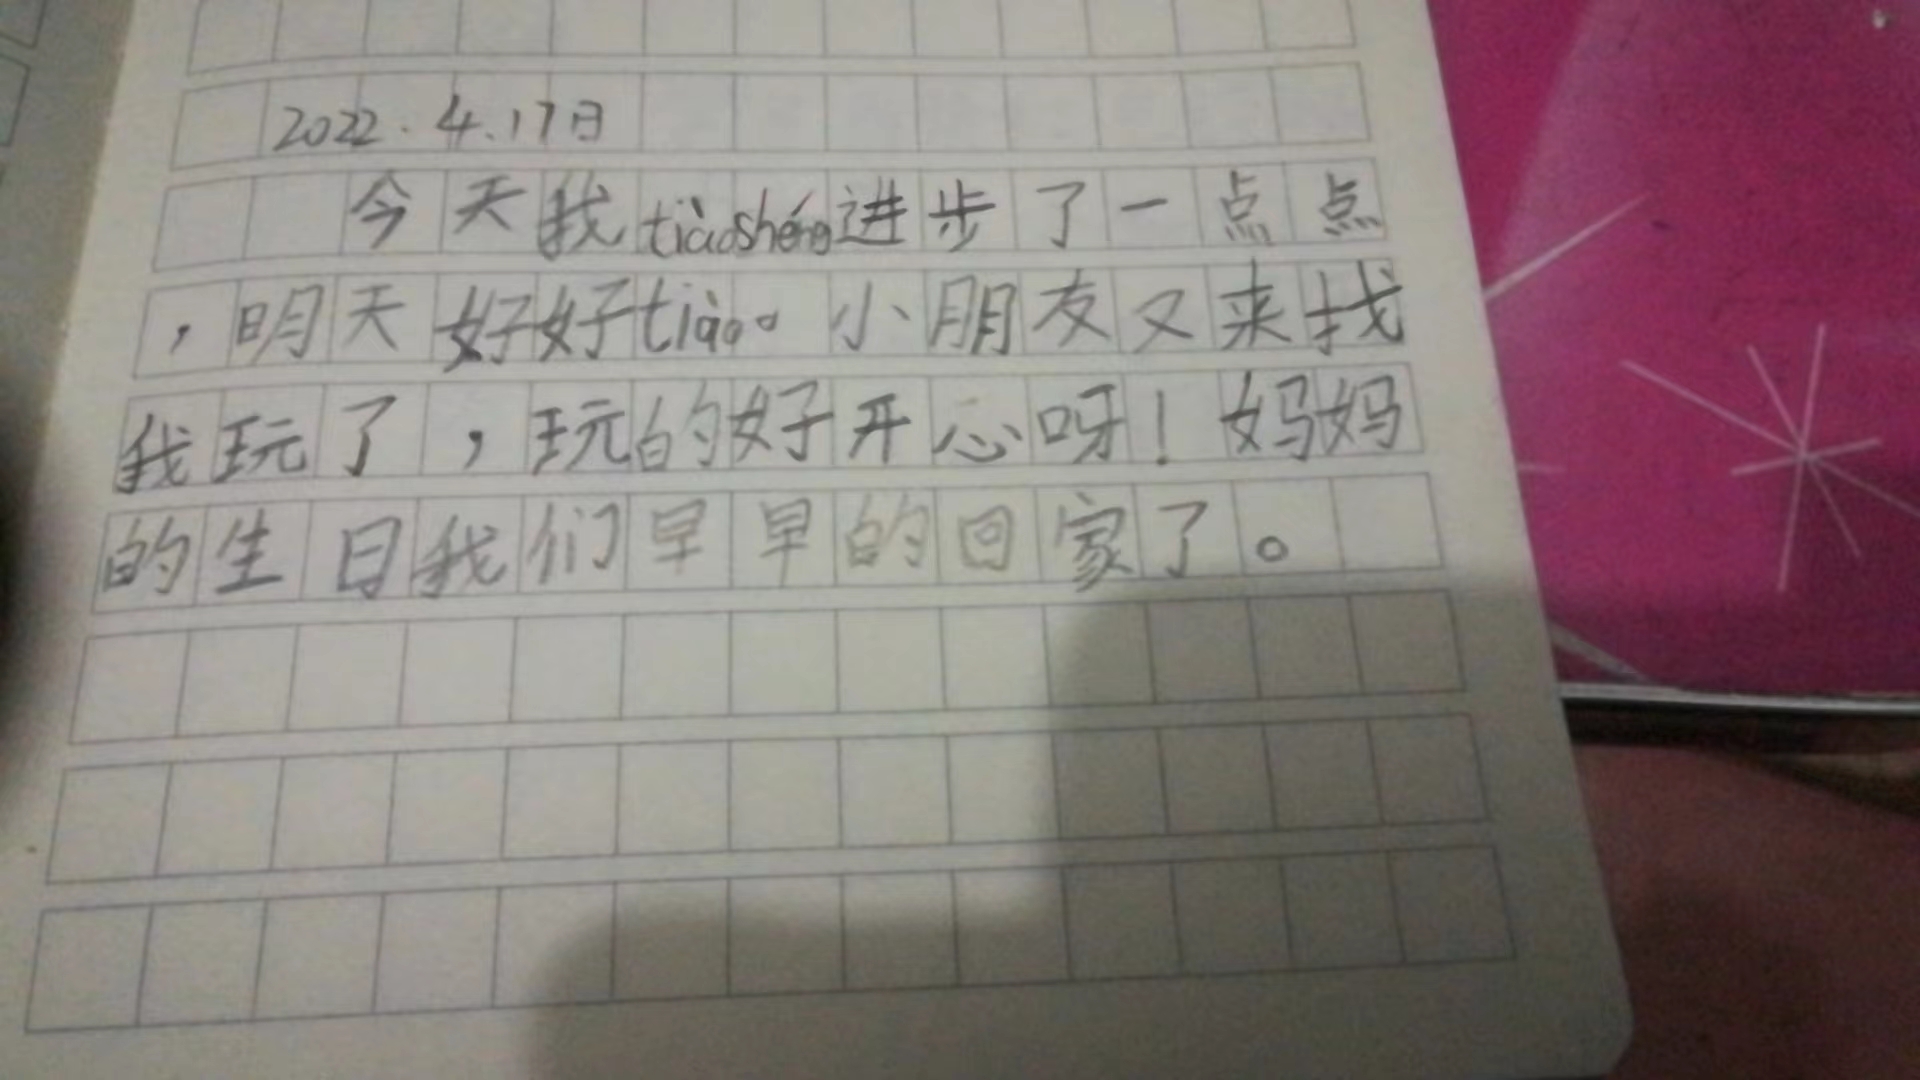 2022.4.17日
今天我tiàoshéng进步了一点点
，明天好好tiào。小朋友又来找
我玩了，玩的好开心呀！妈妈
的生日我们早早的回家了。